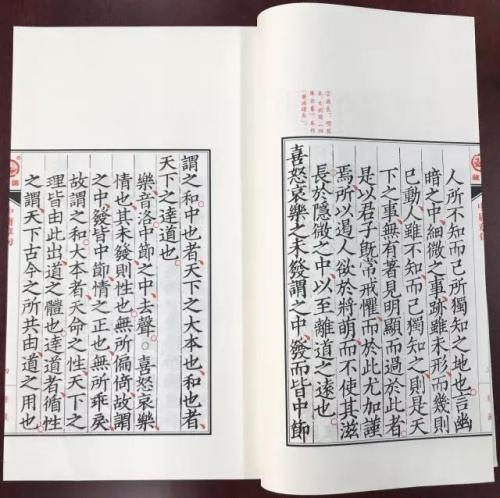 人所不知而己所獨知之地也、言幽
暗之中、細微之事、跡雖未形、而幾則
已動、人雖不知、而己獨知之、則是天
下之事、無有著見明顯而過於此者、
是以君子既常戒懼、而於此尤加謹
焉、所以遏人欲於將萌、而不使其滋
長於隱微之中、以至離道之遠也。
喜怒哀樂之未發、謂之中、發而皆中節、
謂之和、中也者、天下之大本也、和也者、
天下之達道也。
樂音洛、中節之中、去聲。○喜怒哀樂、
情也、其未發、則性也、無所偏倚、故謂
之中、發皆中節、情之正也、無所乖戾、
故謂之和、大本者、天命之性、天下之
理皆由此出、道之體也、達道者、循性
之謂、天下古今之所共由、道之用也、
中庸章句
四